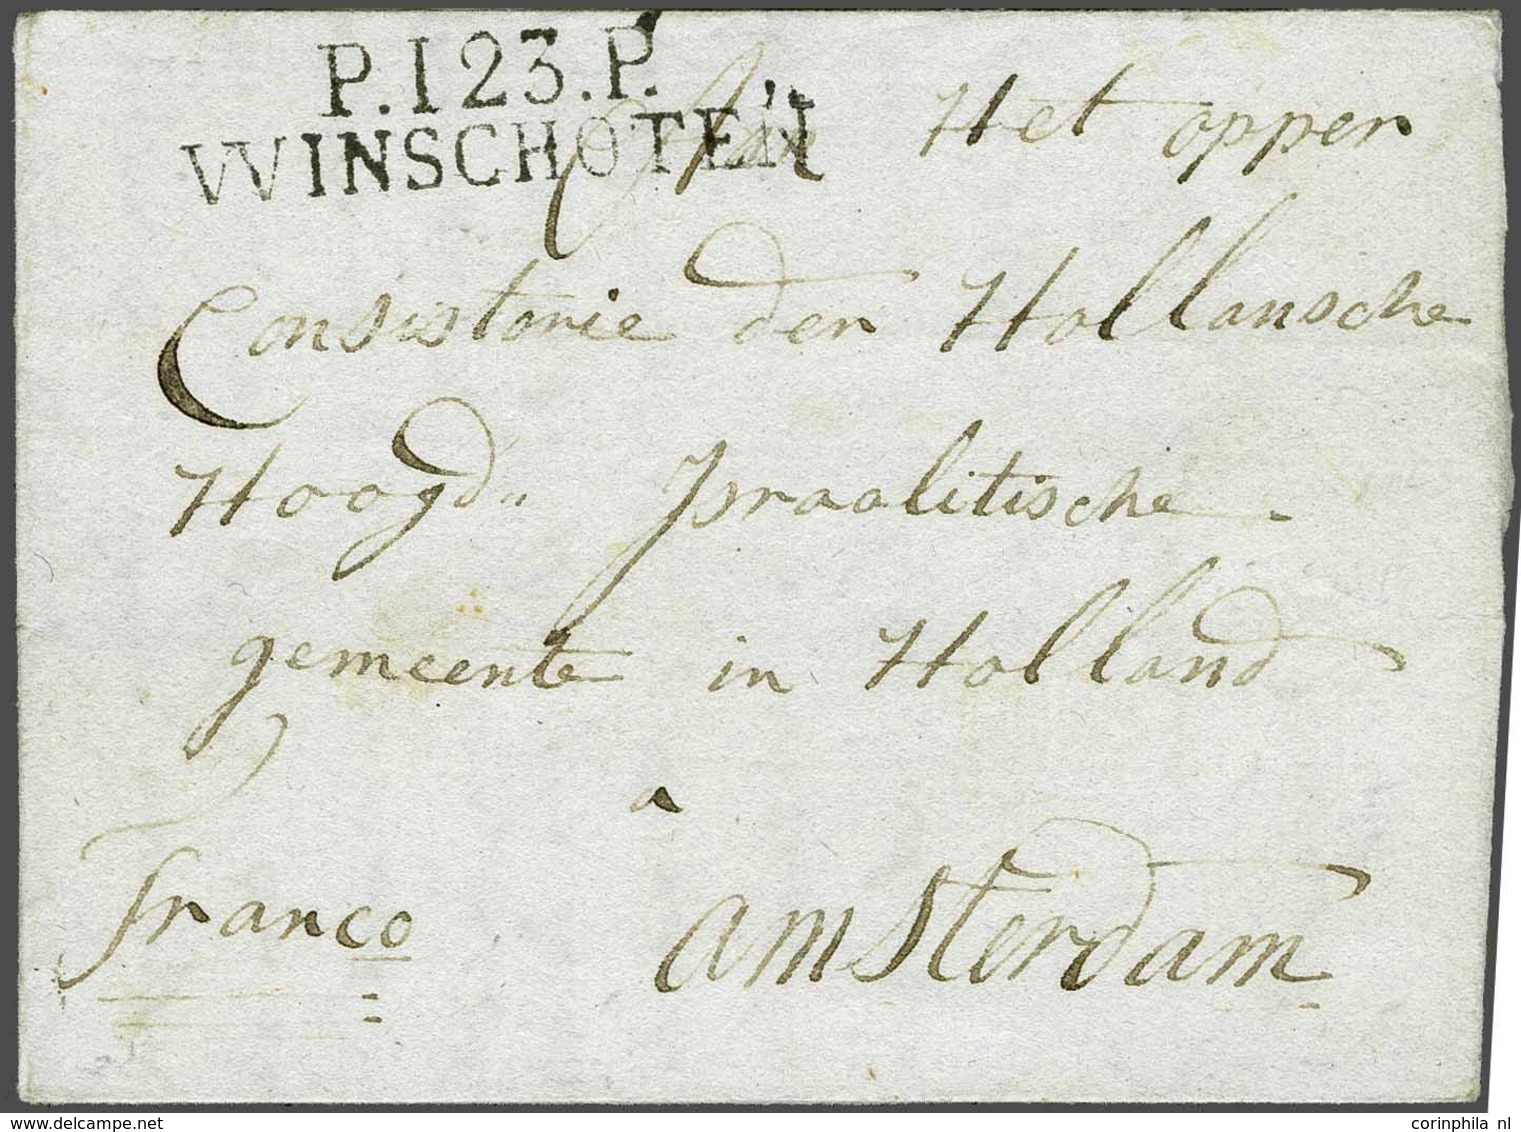 P.123.P.
WINSCHOTEN
Aan Het opper
Consistorie der Hollansche
Hoogd" Israalitische
gemeente in Holland
a
Franco
amsterdam
corinphila nl